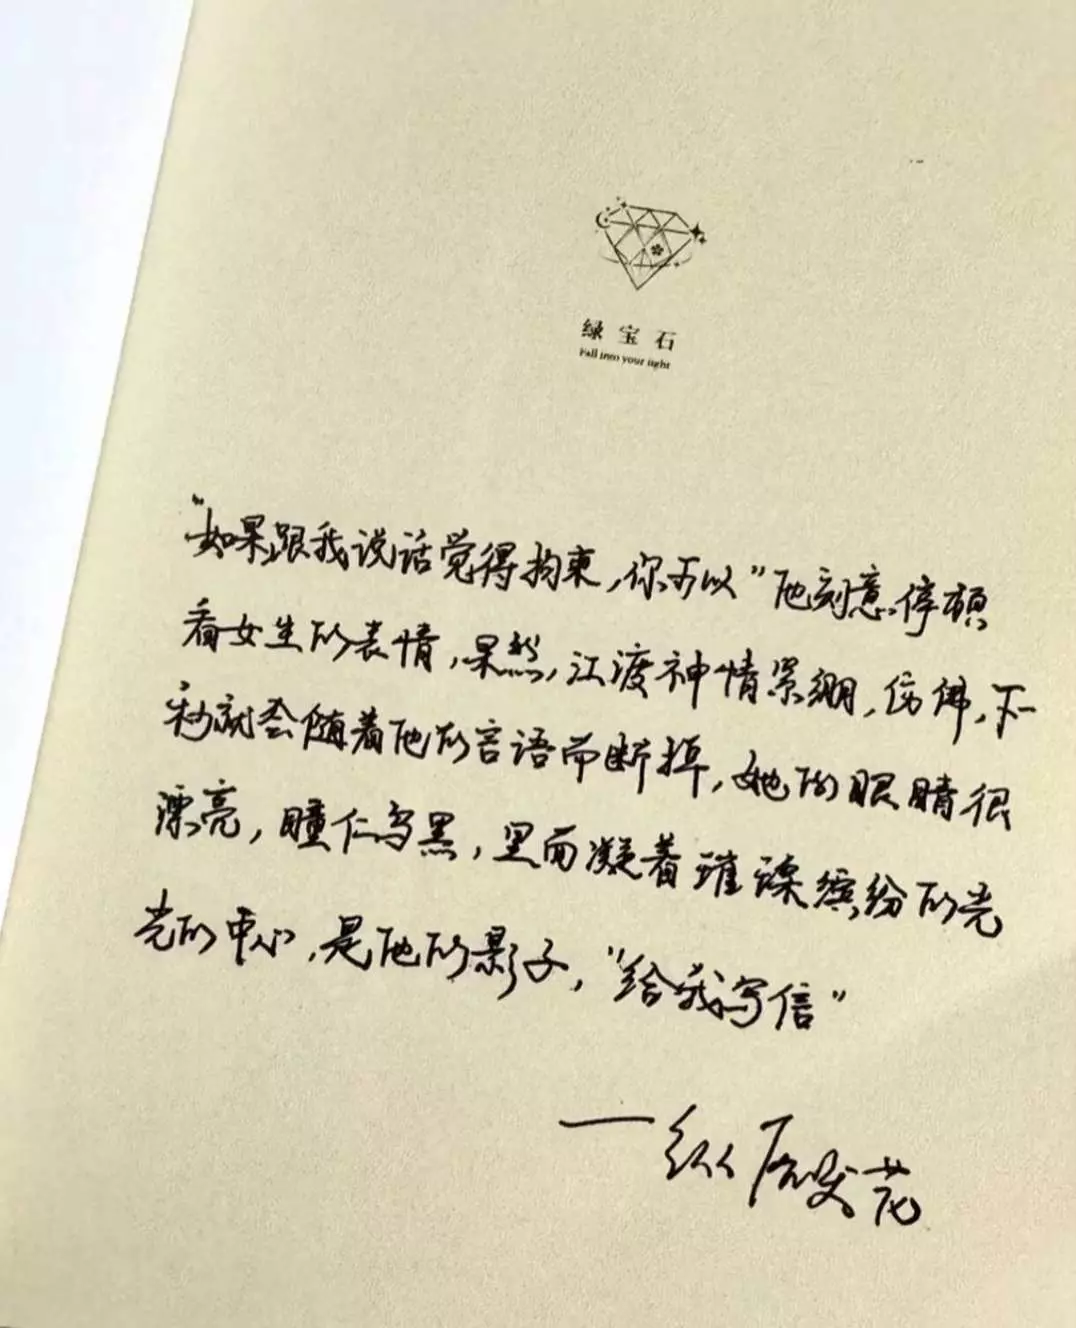 绿宝石
Fall into your light
"如果跟我说话觉得拘束,你可以"他刻意停顿
看女生的表情,果然,江渡神情紧绷,仿佛,下一
秒就会随着他的言语而断掉,她的眼睛很
漂亮,瞳仁乌黑,里面凝着璀璨缤纷的光
光的中心,是他的影子,"给我写信"
——纵虎嗅花